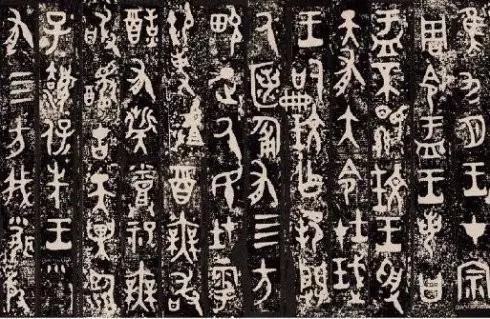 隹九月王才宗
周令盂王若曰
盂不顯玟王受
天有大令在珷
王嗣玟乍邦闢
氒匿匍有四方
畯正氒民在雩
御事酉無敢
酖有祡烝祀無
敢古天異臨
子灋保先王
有四方我聞殷